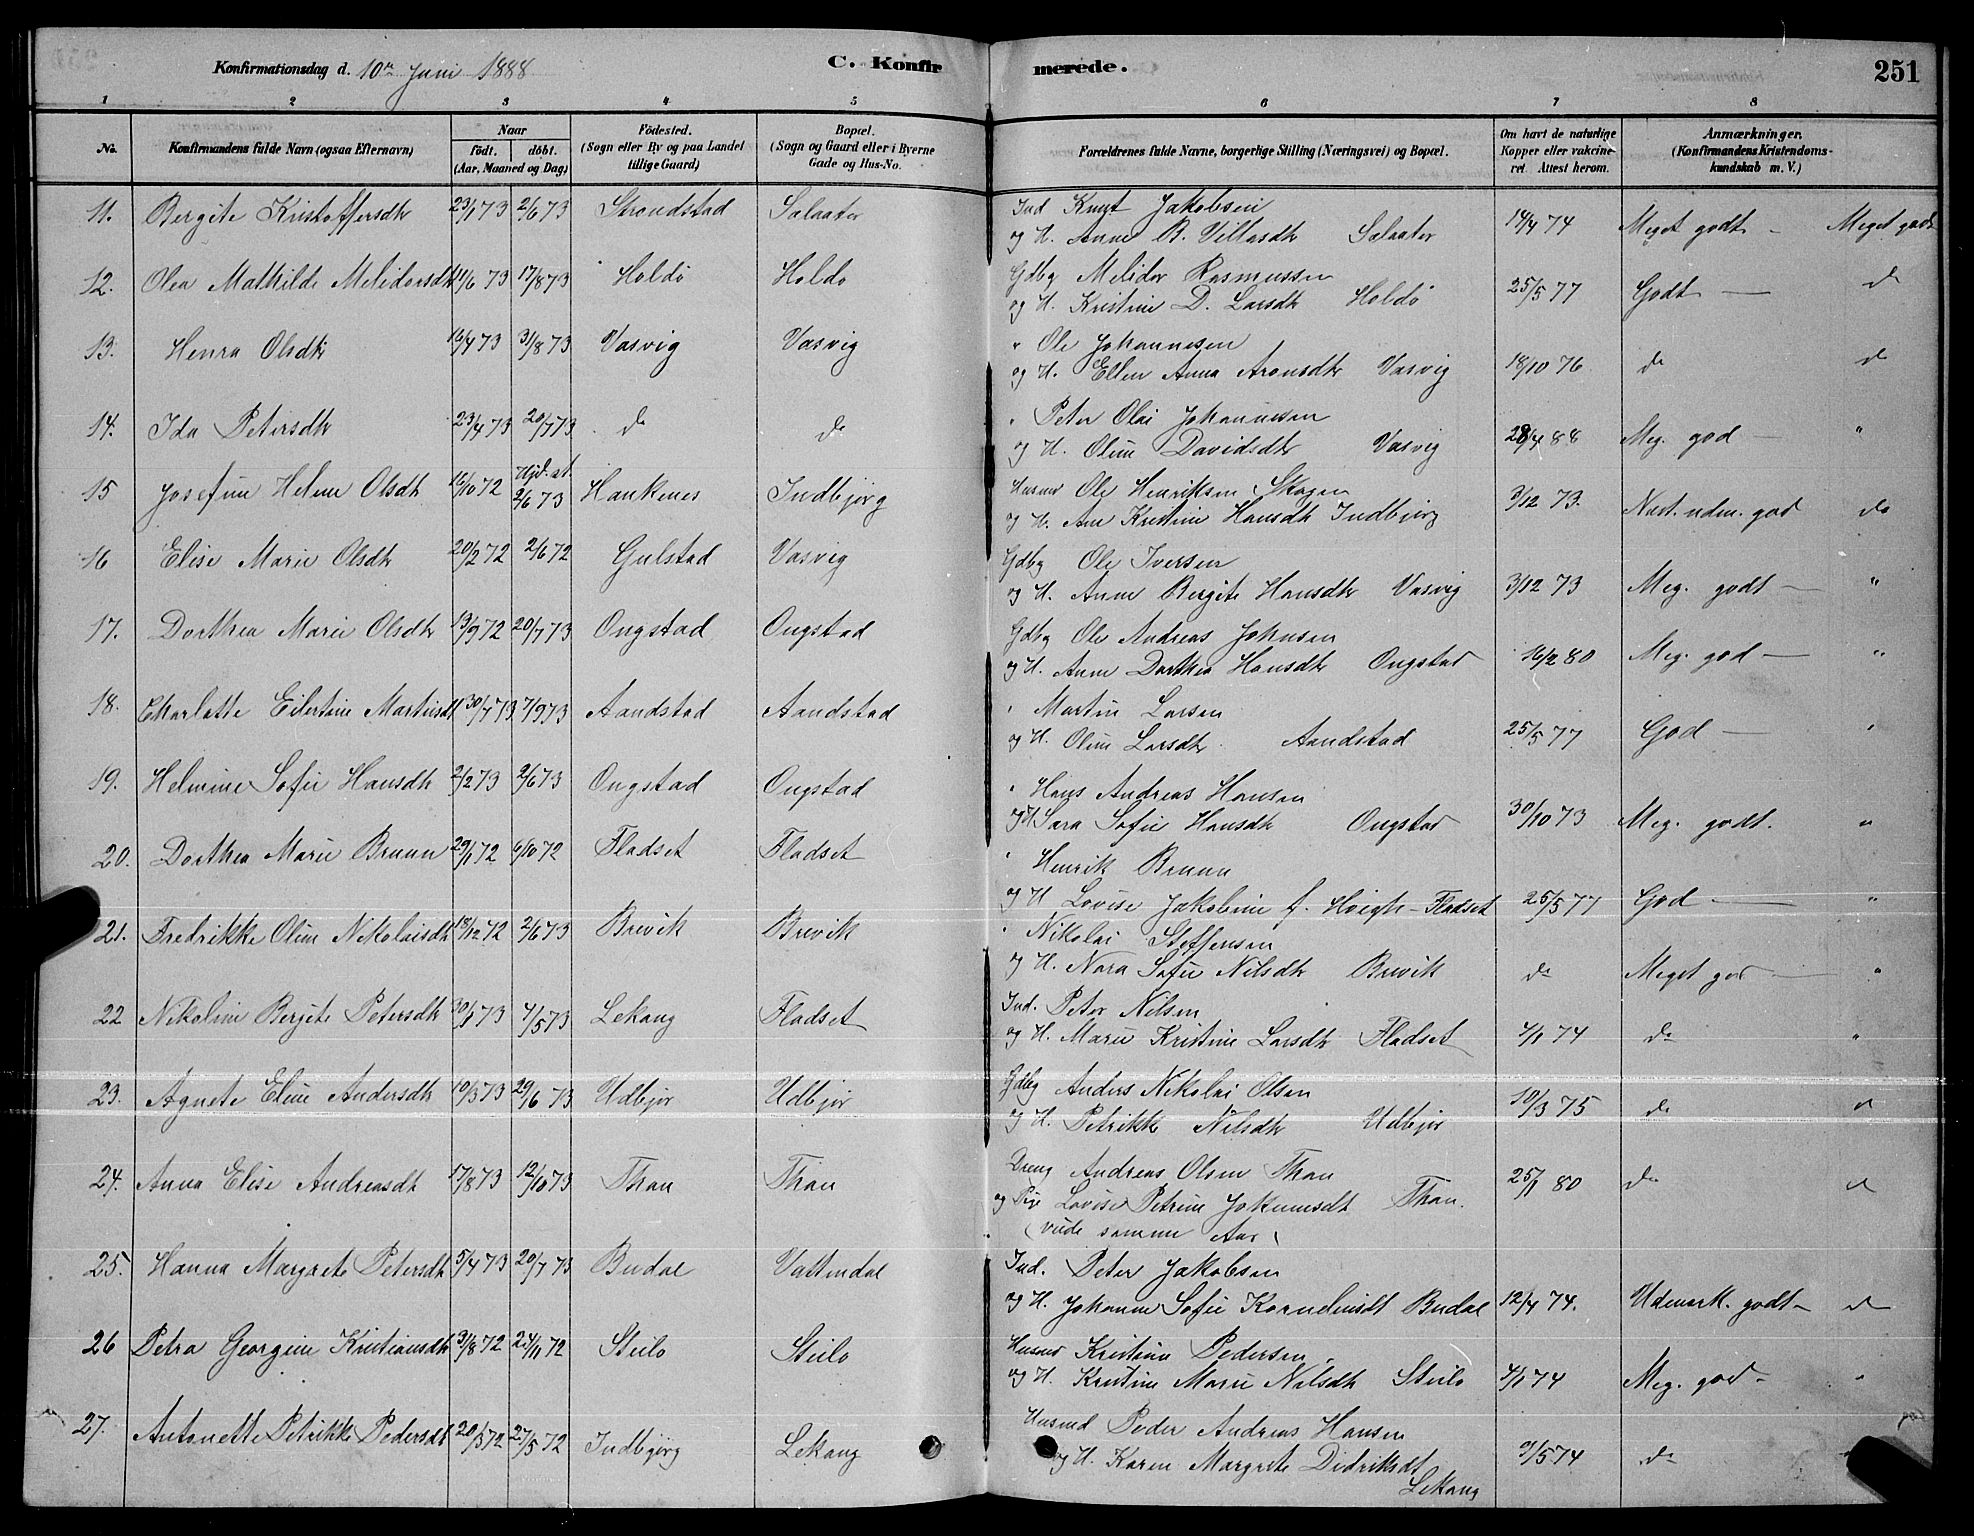 Konfirmationsdag d. 10de Juni 1888
C. Konfirmerede.
251
1 2 3 4 5 6 7 8
No.
Konfirmandens fulde Navn (ogsaa Efternavn)
Naar
födt. döbt.
(Aar, Maaned og Dag)
Födested.
(Sogn eller By og paa Landet
tillige Gaard)
Bopæl.
(Sogn og Gaard eller i Byerne
Gade og Hus-No.
Forældrenes fulde Navne, borgerlige Stilling (Næringsvei) og Bopæl.
Om havt de naturlige
Kopper eller vakcine-
ret. Attest herom.
Anmærkninger.
(Konfirmandens Kristendoms-
kundskab m. V.)
11. Bergite Kristoffersdtr 23/1 73 2/6 73 Strondstad Salaater Ind Knut Jakobsen
og H. Anne B. Villasdtr Salaater 14/4 74 Meget godt - Meget godt
12. Olea Mathilde Melidorsdtr 11/6 73 17/8 73 Holdö Holdö Gdbg Melidor Rasmussen
og H. Kristine D. Larsdtr Holdö 25/5 77 Godt — do
13. Henra Olsdtr 16/4 73 31/8 73 Vasvig Vasvig " Ole Johannesen
og H. Ellen Anna Aronsdtr Vasvig 18/10 76 do do
14. Ida Petersdtr 23/4 73 20/7 73 do do " Peter Olai Johannesen
og H. Oline Davidsdtr Vasvig 28/4 88 Meg. god — "
15 Josefine Helene Olsdtr 16/10 72 Hjd. st. 2/6 73 Haukenes Indbjörg Husmd Ole Henriksen Skogen
og H. Ane Kristine Hansdtr Indbjörg 3/12 73. Næst. udm. god do
16 Elise Marie Olsdtr 20/2 72 2/6 72 Gulstad Vasvig Gdbg Ole Iversen
og H. Anne Bergite Hansdtr Vasvig 3/12 73 Meg. godt — "
17. Dorthea Marie Olsdtr 13/9 72 20/7 73 Ongstad Ongstad Gdbg Ole Andreas Johnsen
og H. Anne Dorthea Hansdtr Ongstad 16/2 80 Meg. god — "
18. Charlotte Eilertine Martinsdtr 30/7 73 7/9 73 Aandstad Aandstad " Martin Larsen
og H. Oline Larsdtr Aandstad 25/5 77 God — "
19. Helmine Sofie Hansdtr 2/2 73 2/6 73 Ongstad Ongstad " Hans Andreas Hansen
og H Sara Sofie Hansdtr Ongstad 30/10 73 Meg. godt. "
20. Dorthea Marie Bruun 29/1 72 6/10 72 Fladset Fladset " Henrik Bruun
og H Lovise Jakobine f. Hveigh - Fladset 25/5 77 God — "
21. Fredrikke Oline Nikolaisdtr 18/12 72 2/6 73 Brevik Brevik " Nikolai Steffensen
og H. Nora Sofie Nilsdtr Brevik do Meget god — "
22 Nikoline Bergite Petersdtr 30/1 73 4/5 73 Lekang Fladset Ind. Peter Nilsen
og H. Marie Kristine Larsdtr Fladset 4/1 74 do "
23. Agnete Eline Andersdtr 10/3 73 29/6 73 Udbjör Udbjör Gdbg Anders Nikolai Olsen
og H. Petrikke Nilsdtr Udbjör 10/3 75 do do
24. Anna Elise Andreasdt 17/8 73 12/10 73 Than Than Dreng Andreas Olsen Than
og Pige Lovise Petrine Johannesdt Than.
25/1 80 do do
25. Hanna Margrete Petersdtr 5/4 73 20/7 73 Budal Vattendal Ind. Peter Jakobsen
og H. Johanne Sofie Korneliusdt Budal 12/4 74. Udmærk. godt - do
26 Petra Georgine Kristiansdtr 31/8 72 24/11 72 Steilo Steilo Husmd Kristian Pedersen
og H. Kristine Marie Nilsdtr Steilo 4/1 74 Meg. god - "
27. Antonette Petrikke Pedersdt 20/1 72 27/5 72 Indbjörg Lekang Husmd Peder Andreas Hansen
og H. Karen Margrete Didriksdt
Lekang
9/5 74 do "